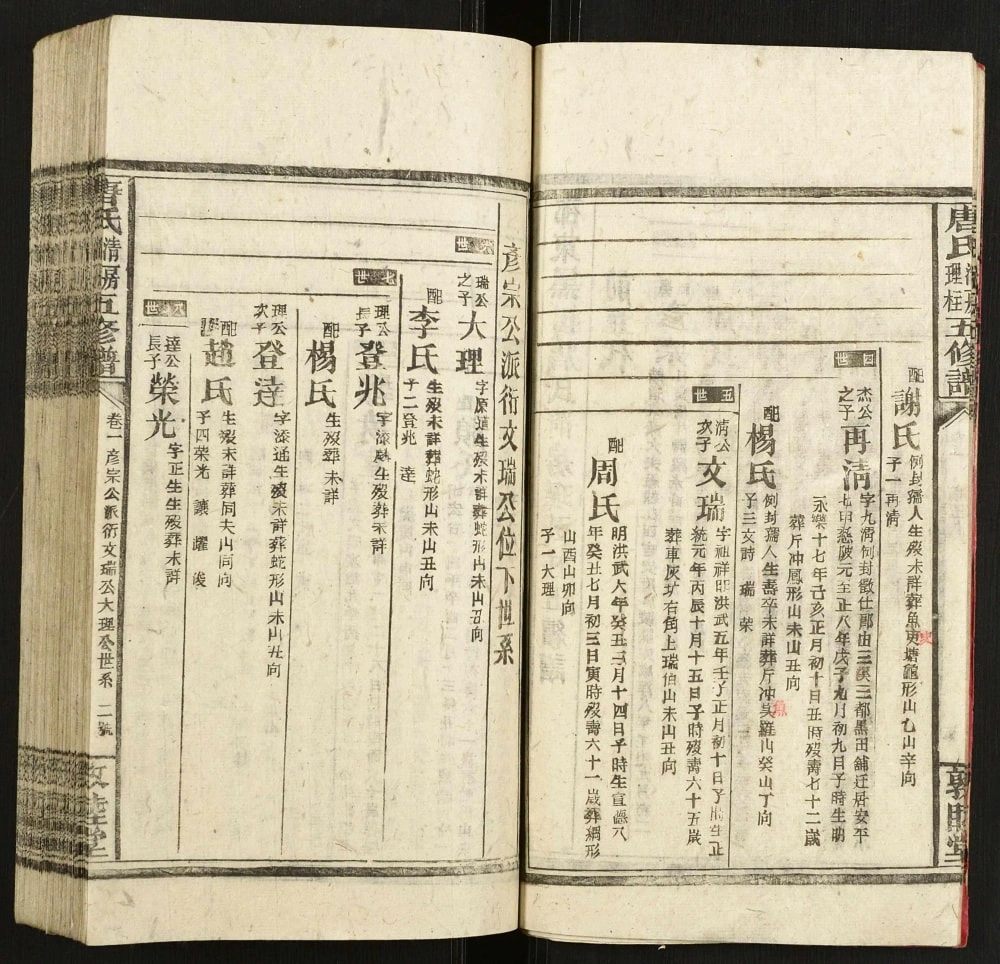 唐氏清房理柱五修譜
敦睦堂
配謝氏
例封孺人生歿未詳葬魚臾塘龜形山乙山辛向
史
子一再清
四世
杰公之子再清
字九淸例封徵仕郎由三溪三都黑田舖迁居安平
七甲慈陂元至正八年戊子九月初九日子時生明
永樂十七年己亥正月初十日丑時歿壽七十二歲
葬斤冲鳳形山未山丑向
配楊氏
例封孺人生壽卒未詳葬斤冲吳羅山癸山丁向
子三文詩 瑞 榮
五世
淸公次子文瑞
字祖祥明洪武五年壬子正月初十日子時生正
統元年丙辰十月十五日子時歿壽六十五歲
葬車灰圹右角上瑞伯山未山丑向
配周氏
明洪武六年癸丑三月十四日子時生宣德八
年癸丑七月初三日寅時歿壽六十一歲葬綱形
山酉山卯向
子一大理
彥宗公派衍文瑞公位下世系
六世
瑞公之子大理
字原道生歿未詳葬蛇形山未山丑向
配李氏
生歿未詳葬蛇形山未山丑向
子二登兆 達
七世
理公長子登兆
字添麟生歿葬未詳
配楊氏
生歿葬未詳
理公次子登達
字添通生歿未詳葬蛇形山未山丑向
配趙氏
生歿未詳葬同夫山同向
子四榮光 讓 耀 俊
八世
達公長子榮光
字正生生歿葬未詳
唐氏清房五修譜
卷一彥宗公派衍文瑞公大理公世系 二號
敦睦堂